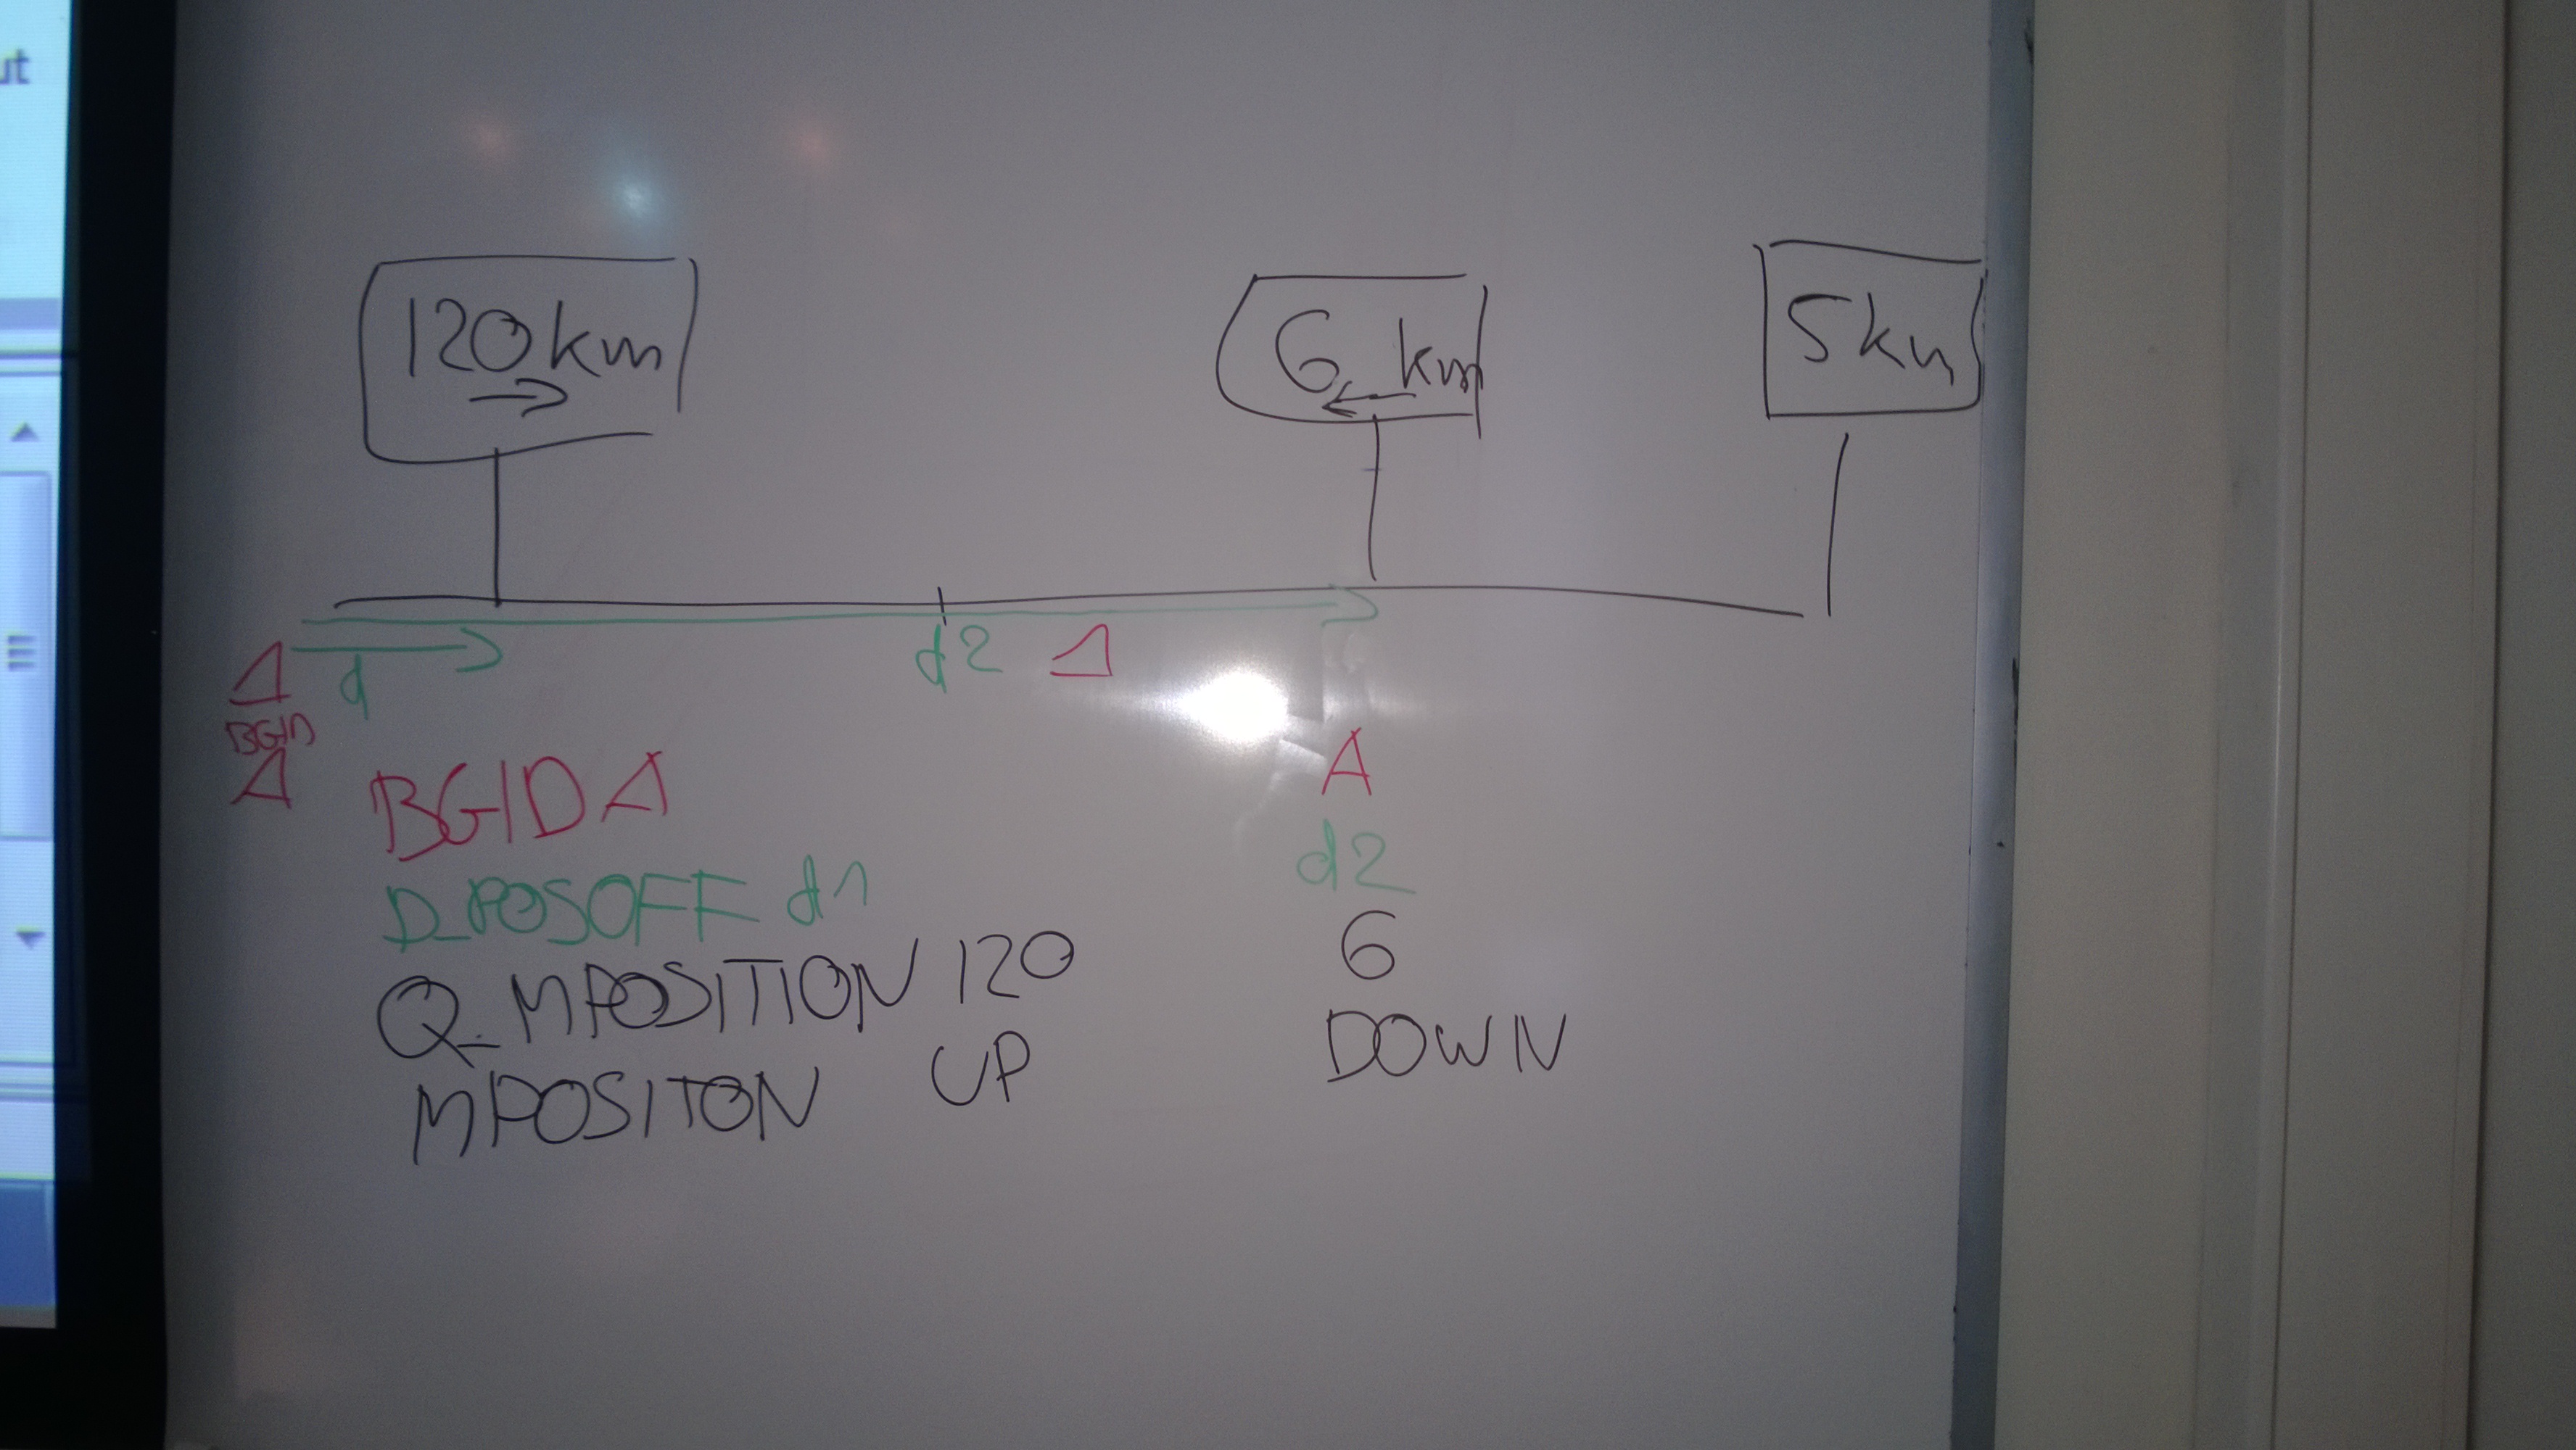 ut
120km
6 km
5km
d
d2
BGID
A
BGID A
D_POSOFF d1
Q_MPOSITION 120
MPOSITON UP
A
d2
6
DOWN